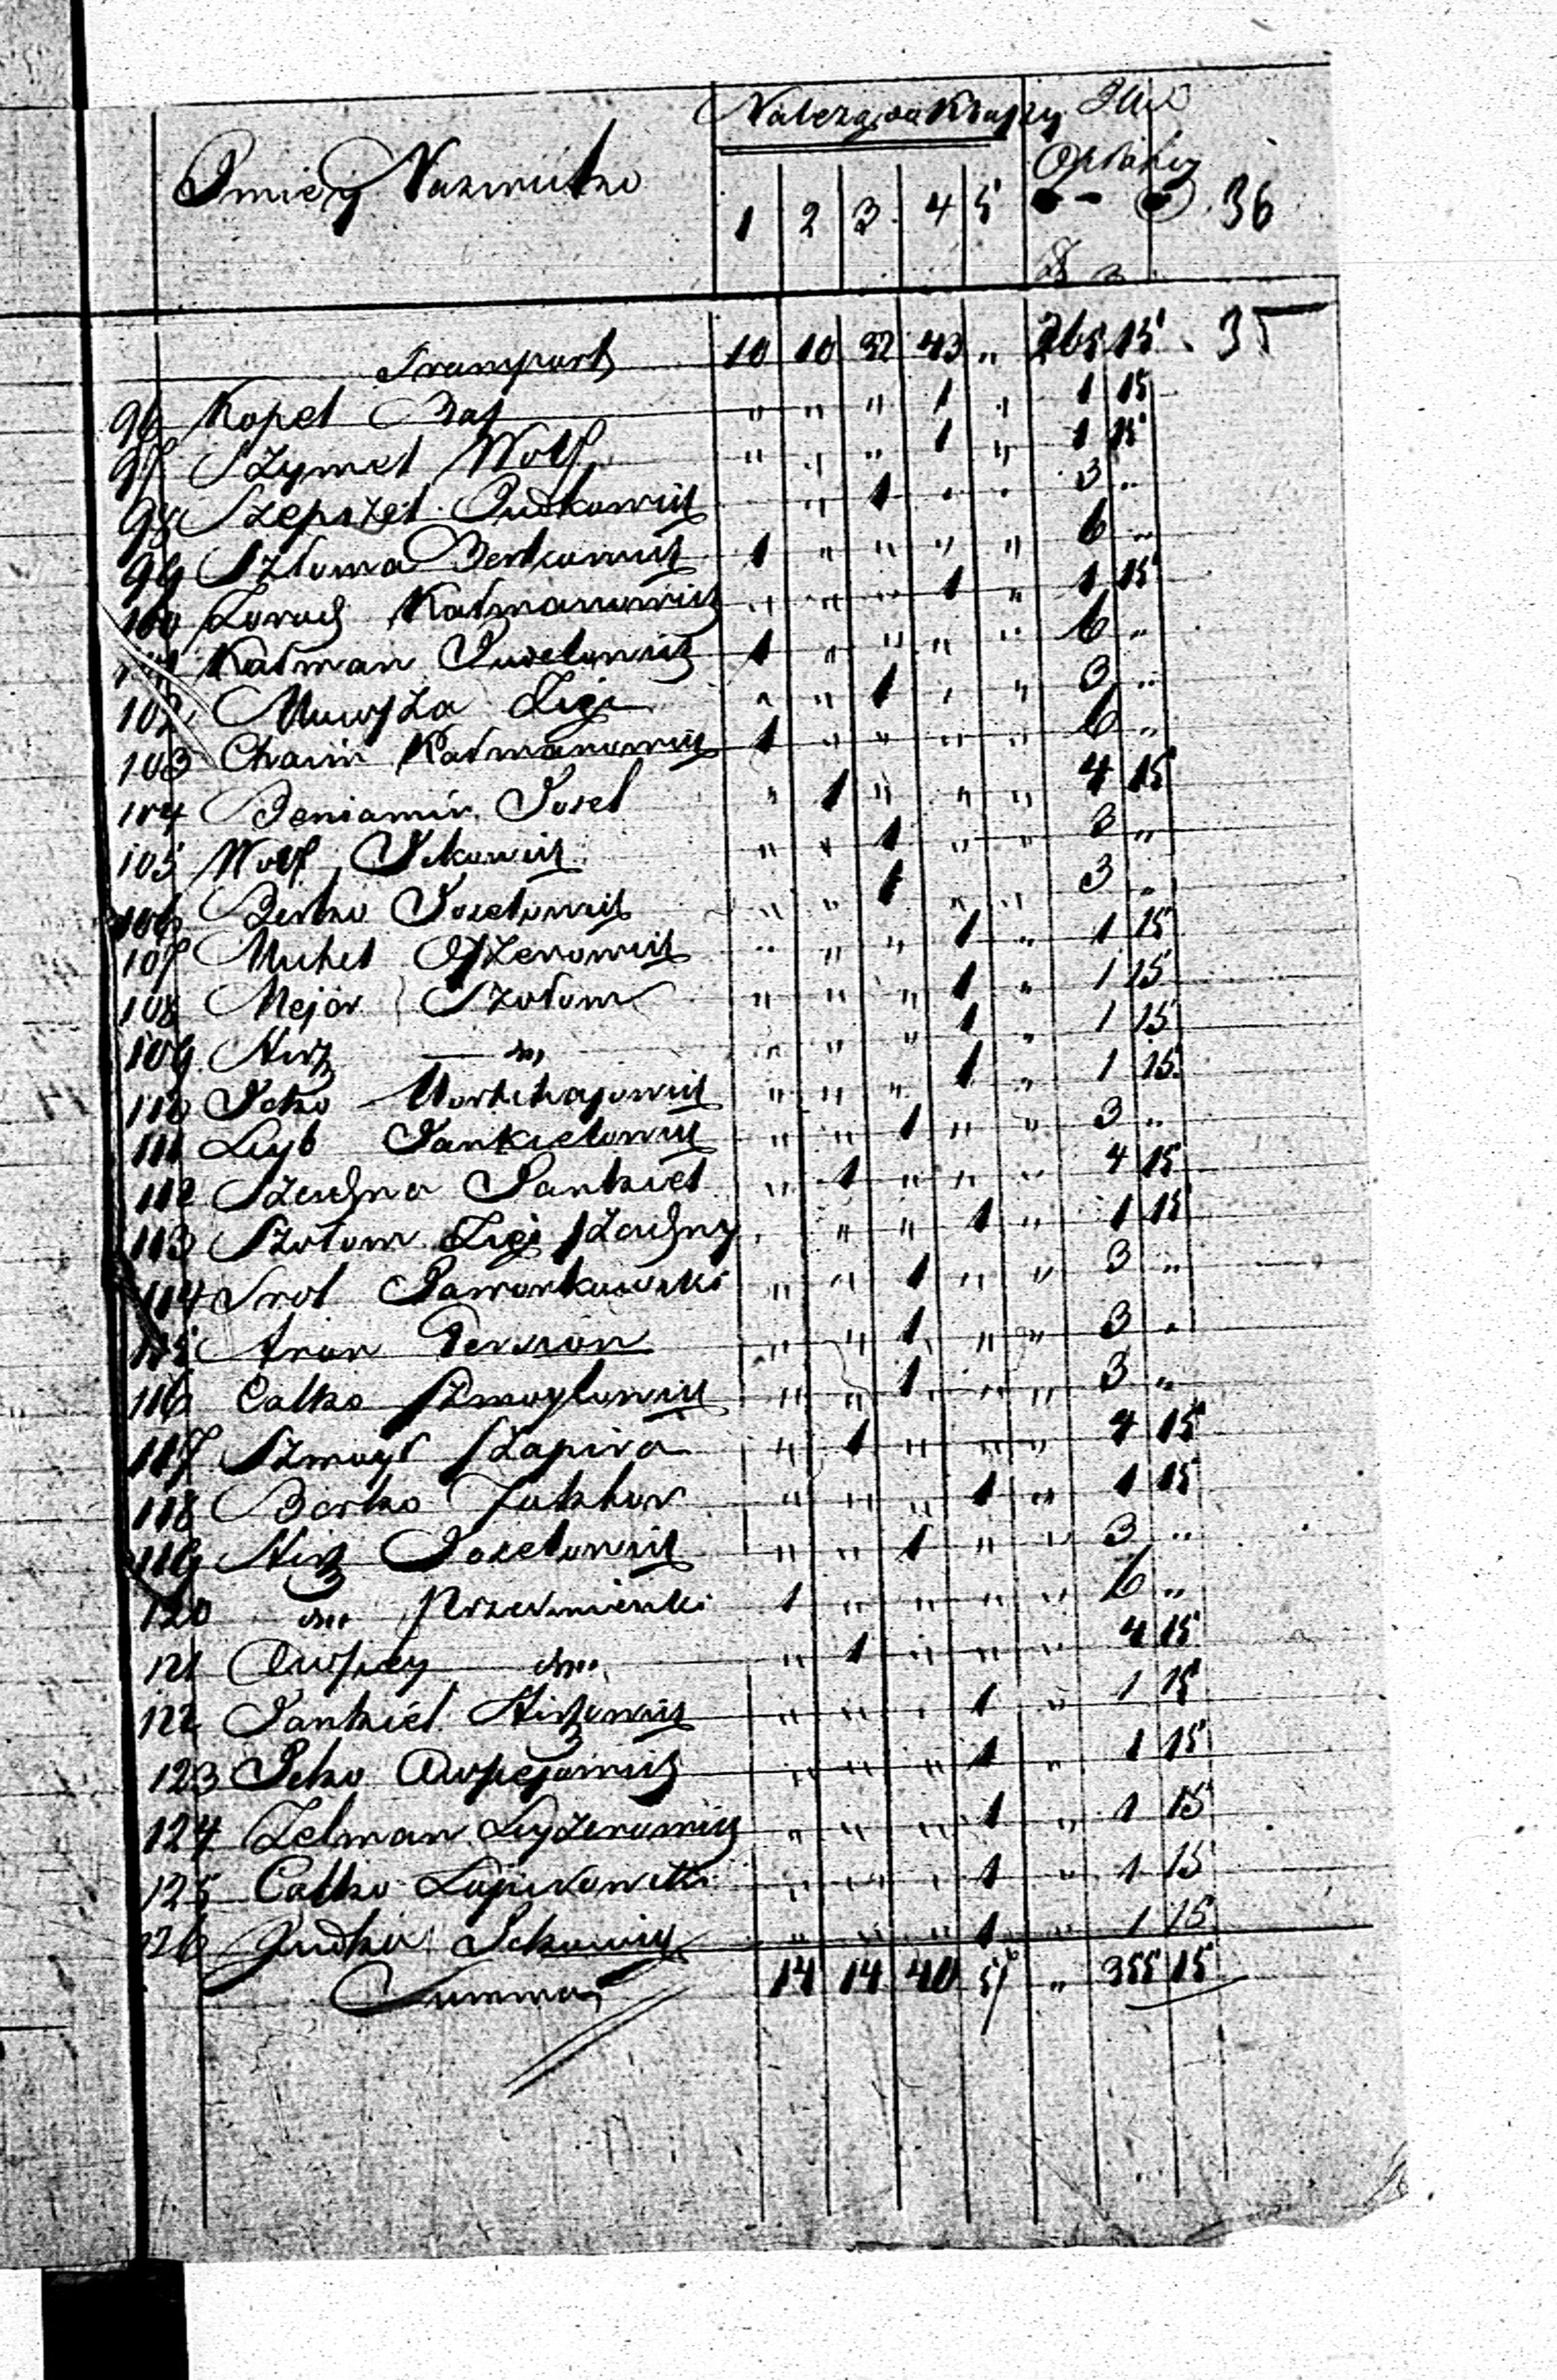 Imie y Nazwisko Należą do Klassy Ilość Opłaty
1 2 3 4 5 36
Transport 10 10 32 43 „ 265 15 35
96 Kopel Baś „ „ „ 1 „ 1 15
97 Szymel Wolf „ „ „ 1 „ 1 15
98 Szepszel Judkowicz „ „ 1 „ „ 3 „
99 Szloma Berkowicz 1 „ „ „ „ 6 „
100 Zoruch Kałmanowicz „ „ „ 1 „ 1 15
101 Kałman Juselowicz 1 „ „ „ „ 6 „
102 Mowsza „ „ 1 „ „ 3 „
103 Chaim Kałmanowicz 1 „ „ „ „ 6 „
104 Beniamin Josel „ 1 „ „ „ 4 15
105 Wolf Ickowicz „ „ 1 „ „ 3 „
106 Berko Joselowicz „ „ 1 „ „ 3 „
107 Michel Oszerowicz „ „ „ 1 „ 1 15
108 Mejor Szołom „ „ „ 1 „ 1 15
109 Hirz — dto „ „ „ 1 „ 1 15
110 Icko Mortchajowicz „ „ „ 1 „ 1 15
111 Leyb Jankielowicz „ „ 1 „ „ 3 „
112 Szachna Jankiel „ 1 „ „ „ 4 15
113 Szołom Zięć Szachny „ „ „ 1 „ 1 15
114 Srol Jaworkowski „ „ 1 „ „ 3 „
115 Aron Gerszon „ „ 1 „ „ 3 „
116 Calko Szmoylowicz „ „ 1 „ „ 3 „
117 Szmoyl Szapiro „ 1 „ „ „ 4 15
118 Berko „ „ „ 1 „ 1 15
119 Hirz Joselowicz „ „ 1 „ „ 3 „
120 dto Przedmieski 1 „ „ „ „ 6 „
121 Owszey dto „ 1 „ „ „ 4 15
122 Jankiel Hirzowicz „ „ „ 1 „ 1 15
123 Icko Owszejowicz „ „ „ 1 „ 1 15
124 Zelman Leyzerowicz „ „ „ 1 „ 1 15
125 Calko Łopidowski „ „ „ 1 „ 1 15
126 Judka Ickowicz „ „ „ 1 „ 1 15
Summa 14 14 40 57 „ 355 15